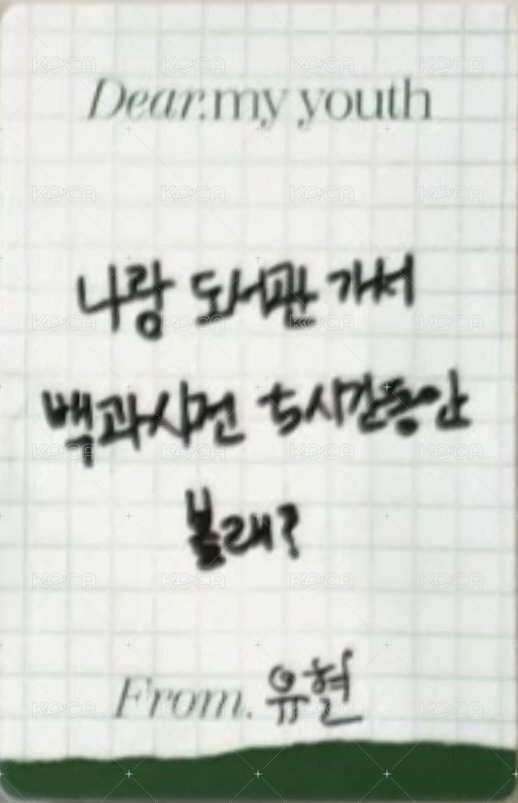 Dear.my youth
나랑 도서관 가서
백과사전 5시간동안
볼래?
From. 유현